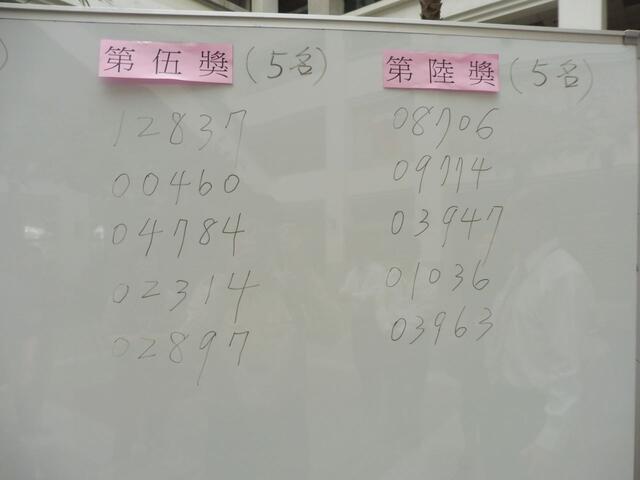 第伍獎(5名)
12837
00460
04784
02314
02897
第陸獎(5名)
08706
09774
03947
01036
03963